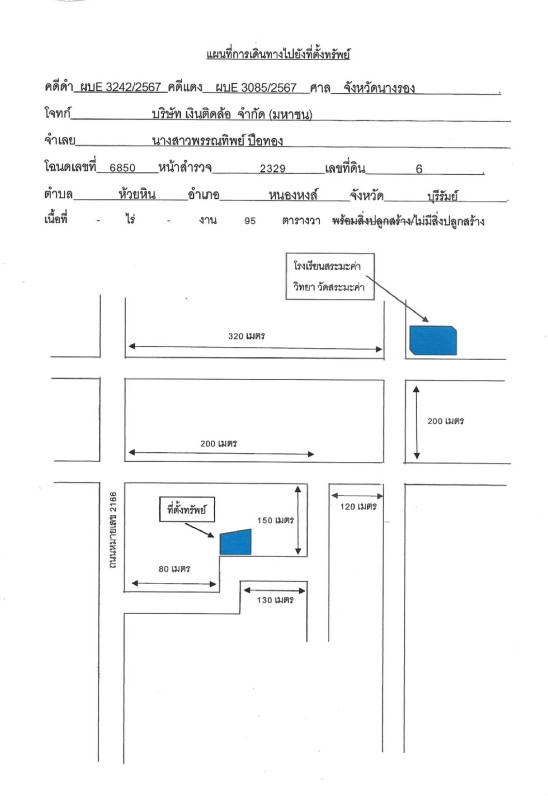 แผนที่การเดินทางไปยังที่ตั้งทรัพย์
คดีดำ ผบE 3242/2567 คดีแดง ผบE 3085/2567 ศาล จังหวัดนางรอง
โจทก์ บริษัท เงินติดล้อ จำกัด (มหาชน)
จำเลย นางสาวพรรณทิพย์ ปือทอง
โฉนดเลขที่ 6850 หน้าสำรวจ 2329 เลขที่ดิน 6
ตำบล ห้วยหิน อำเภอ หนองหงส์ จังหวัด บุรีรัมย์
เนื้อที่ - ไร่ - งาน 95 ตารางวา พร้อมสิ่งปลูกสร้าง/ไม่มีสิ่งปลูกสร้าง
โรงเรียนสระมะค่า
วิทยา วัดสระมะค่า
320 เมตร
200 เมตร
200 เมตร
ถนนหมายเลข 2166
ที่ตั้งทรัพย์
150 เมตร
120 เมตร
80 เมตร
130 เมตร